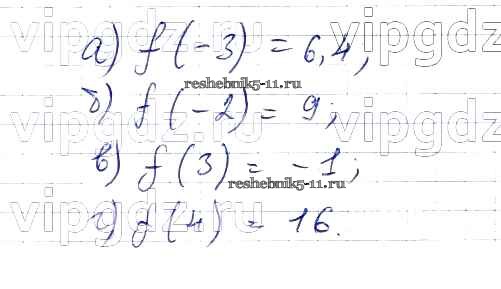 а) f(-3) = 6,4,
reshebnik5-11.ru
б) f(-2) = 9;
в) f(3) = -1;
reshebnik5-11.ru
г) f(4) = 16.
vipgdz
vipgdz
vipgdz
vipgdz
vipgdz.ru
vipgdz
vipgdz.ru
vipgdz